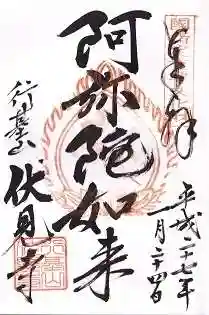 奉拝
平成二十七年
一月二十四日
阿弥陀如来
行基山
伏見寺